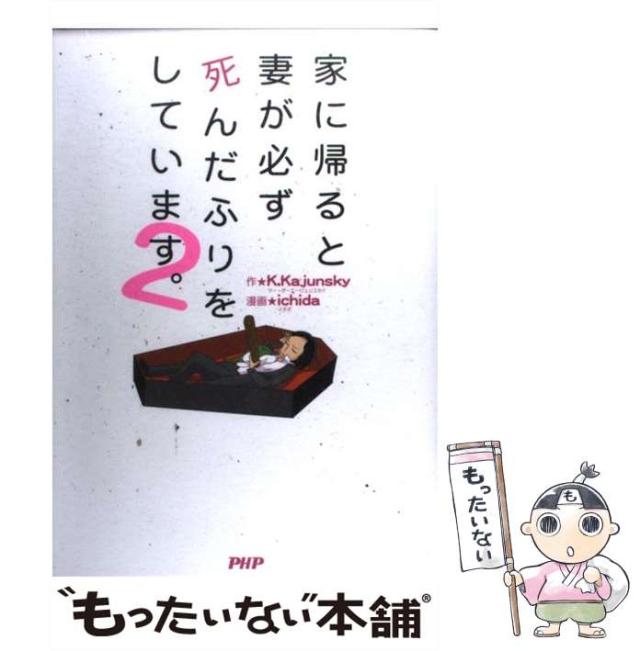 家に帰ると
妻が必ず
死んだふりを
しています。
2
作★K.Kajunsky
漫画★ichida
イチダ
PHP
"もったいない"本舗®
もったいない
も